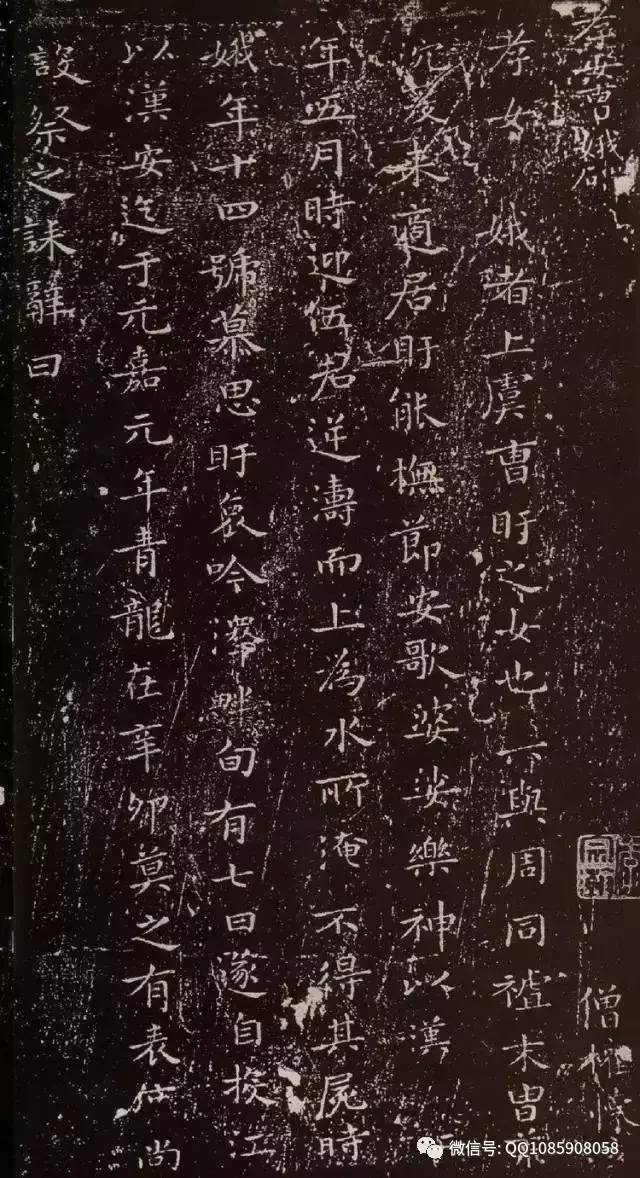 孝女曹娥碑
僧權
孝女 娥者上虞曹盱之女也 與周同 末冑
沉爰來適居盱能撫節安歌婆娑樂神以漢
年五月時迎伍君逆濤而上為水所淹不得其屍時
娥年十四號慕思盱哀吟澤畔旬有七日遂自投江
以漢安迄于元嘉元年青龍在辛卯莫之有表 尚
設祭之誄辭曰
微信号: QQ1085908058